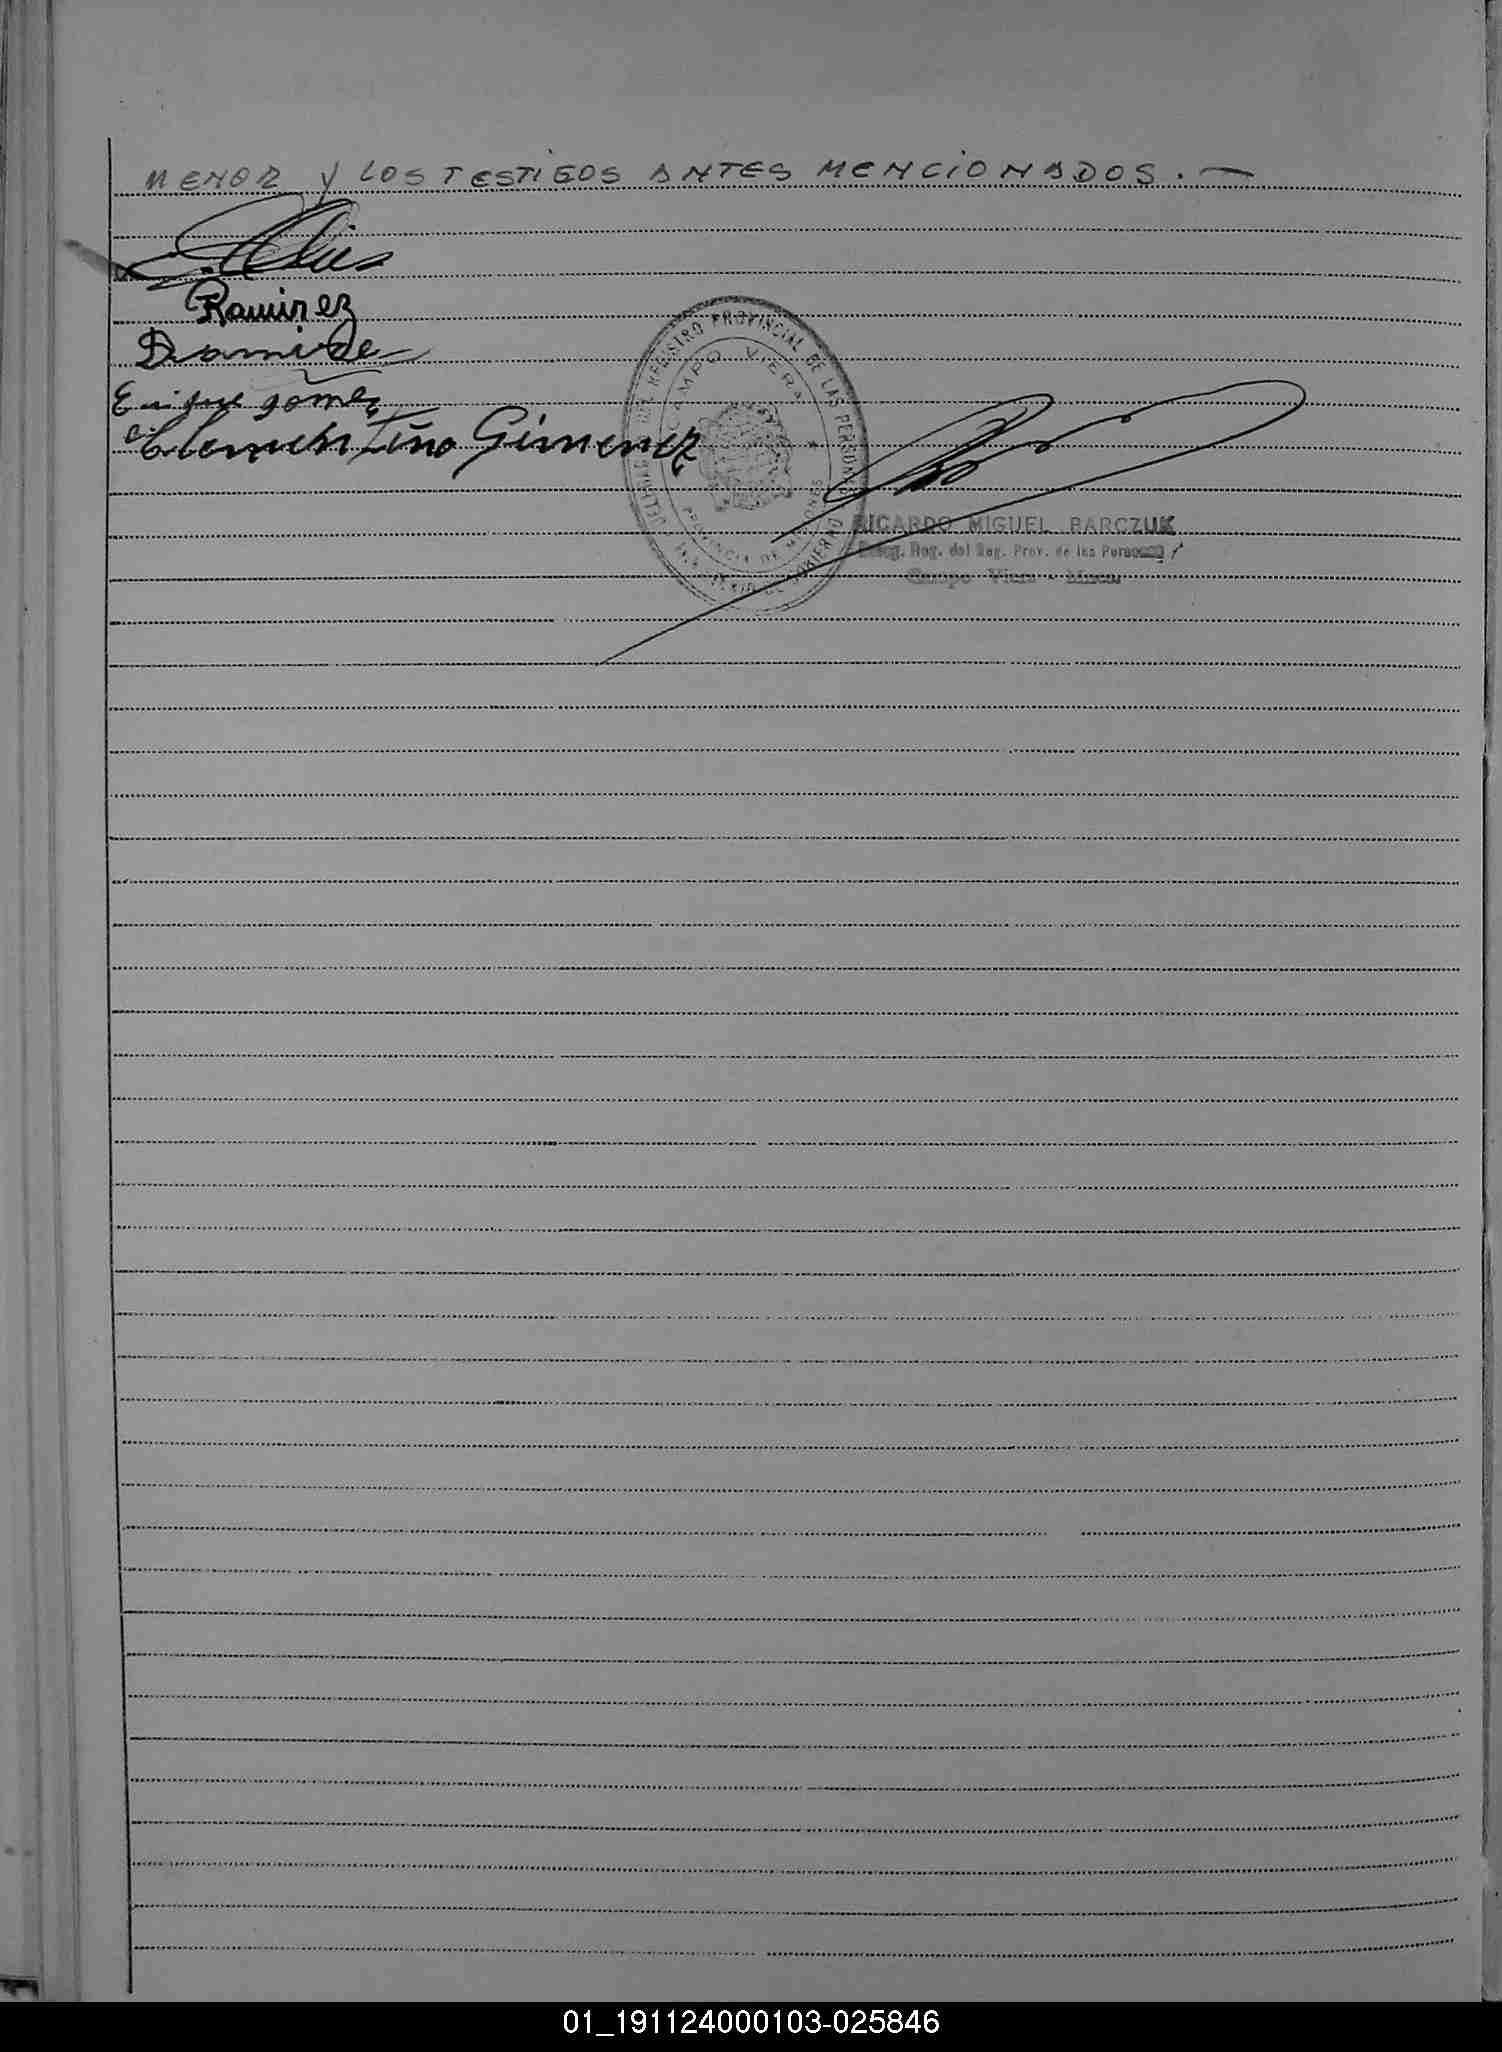 MENOR Y LOS TESTIGOS ANTES MENCIONADOS. —
Ramirez
Enrique gomez
Clementino Gimenez
DEL REGISTRO PROVINCIAL DE LAS PERSONAS
CAMPO VIERA
PROVINCIA DE MISIONES
RICARDO MIGUEL BARCZUK
Deleg. Reg. del Reg. Prov. de las Personas
Campo Viera - Mnes.
01_191124000103-025846